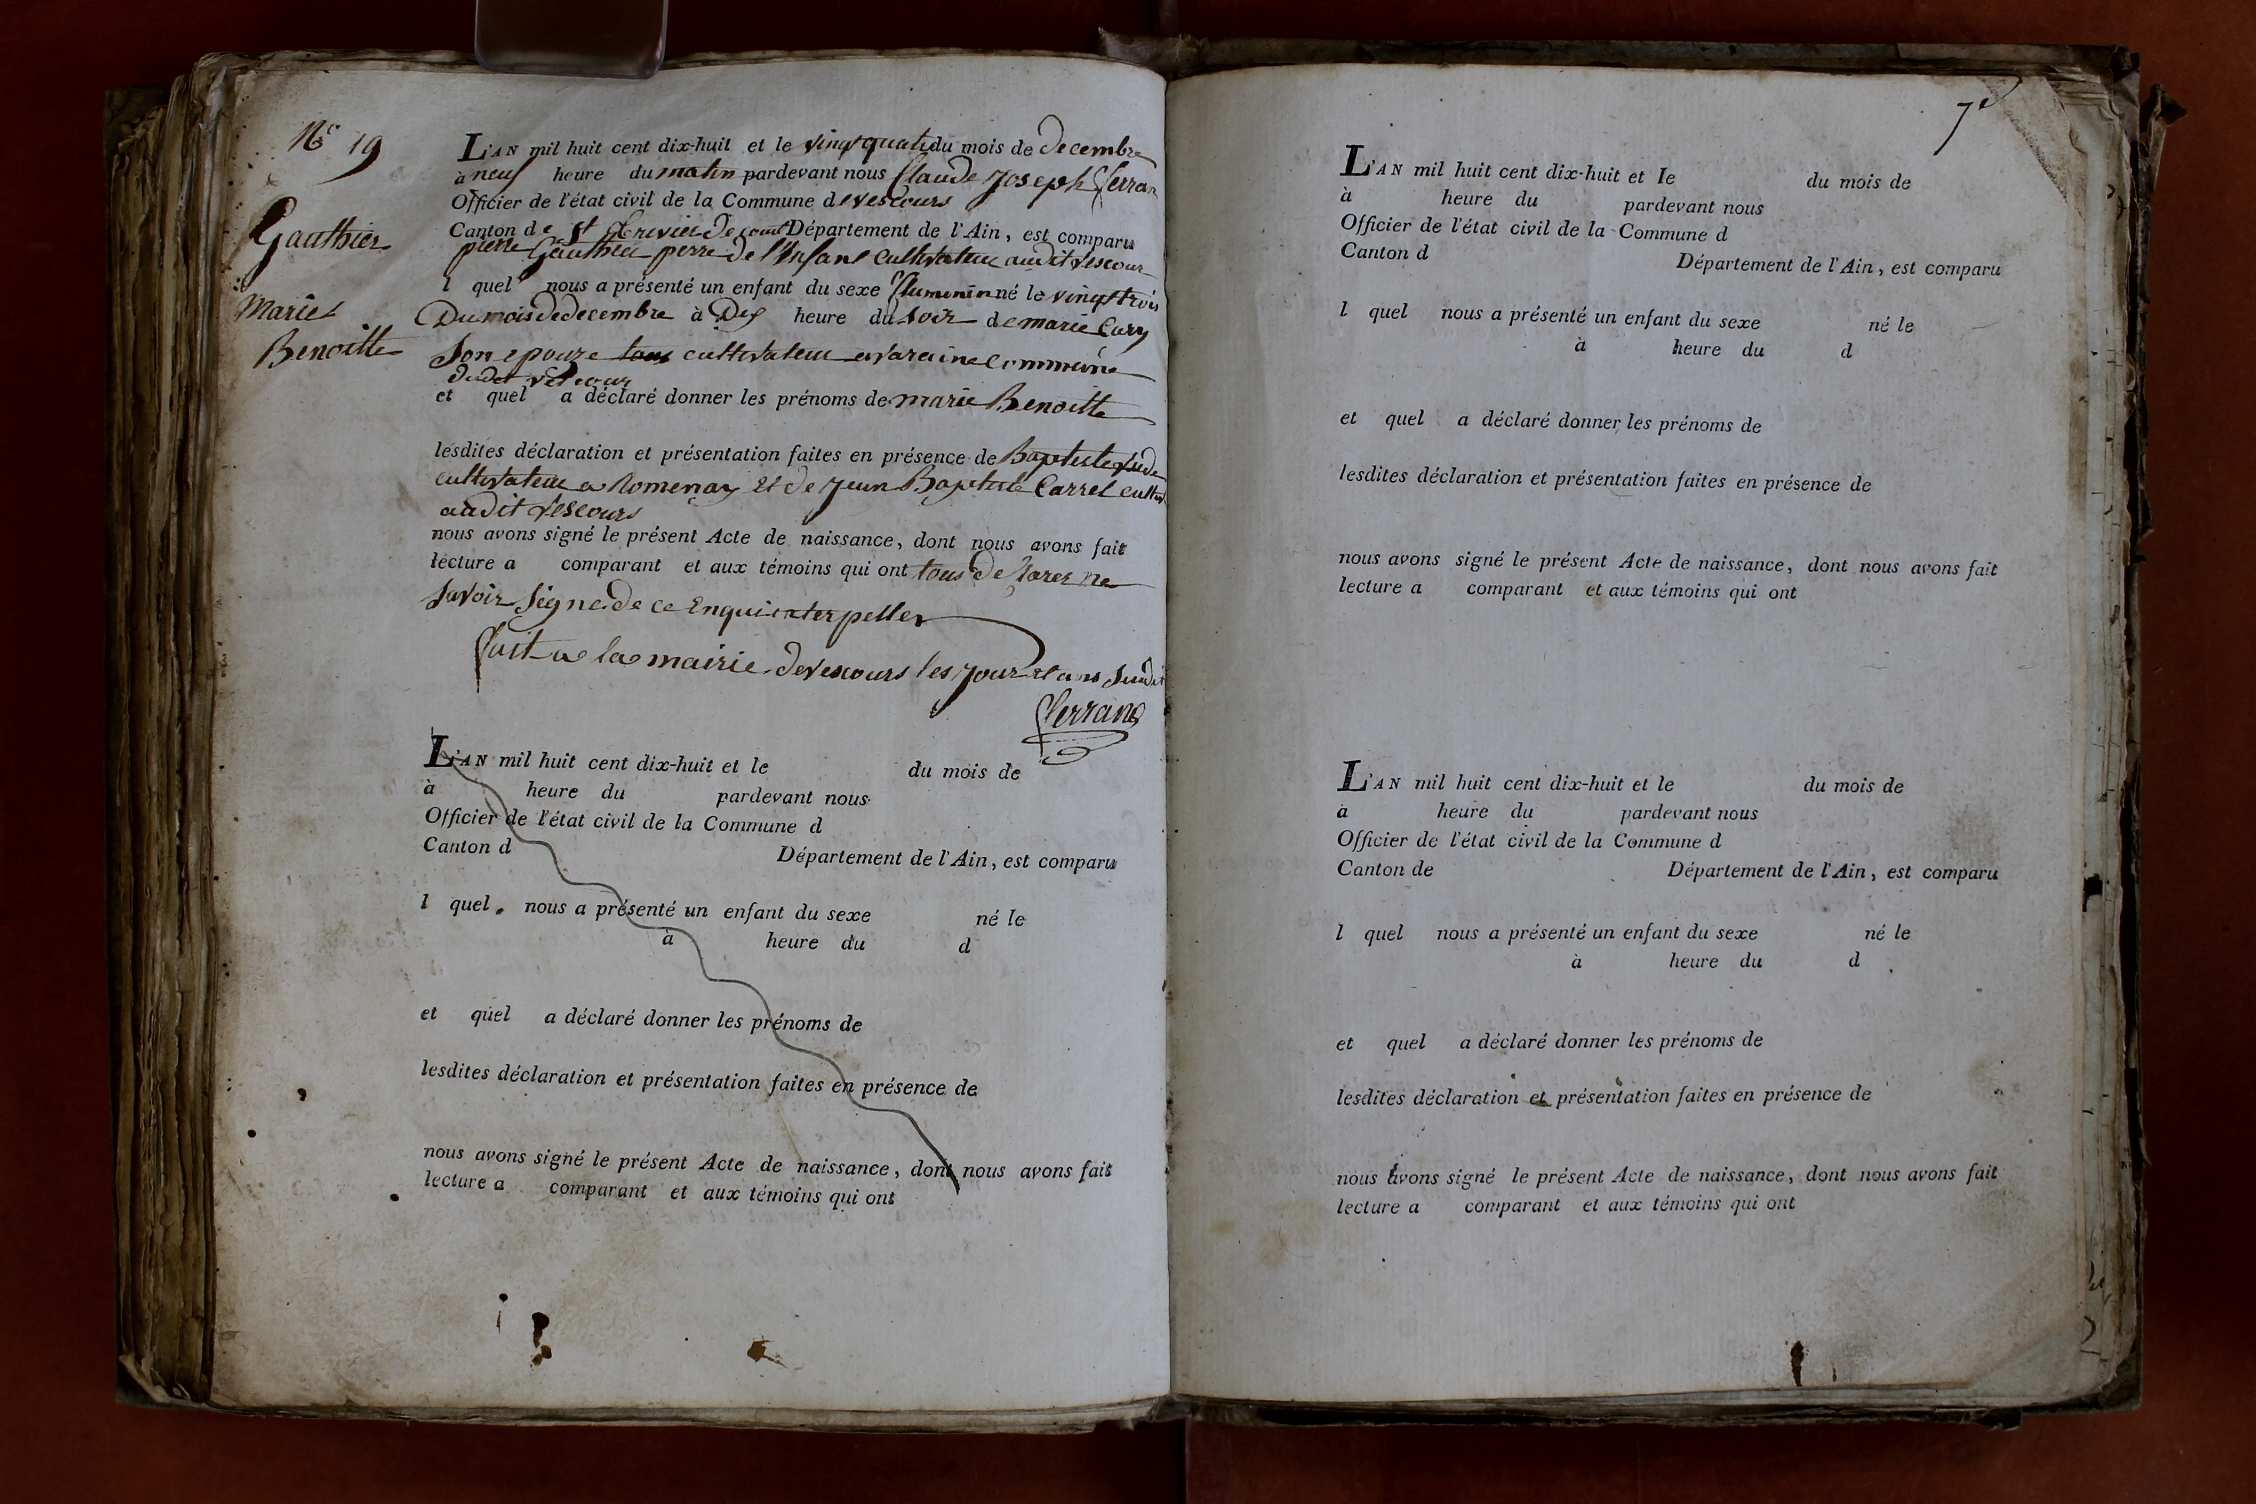 N° 19
Gauthier
Marie
Benoitte
L'AN mil huit cent dix-huit et le vingt quatre du mois de decembre
à neuf heure du matin pardevant nous Claude Joseph ferran
Officier de l'état civil de la Commune de vescours
Canton de St Trivier de cour Département de l'Ain, est comparu
pierre Gauthier perre de l'Enfant cultivateur audit vescour
l quel nous a présenté un enfant du sexe né le vingt trois
Du mois de decembre à Dix heure du soir de marie Cary
Son epouze cultivateur a varaine commune
dudit vescour
et quel a déclaré donner les prénoms de marie Benoitte
lesdites déclaration et présentation faites en présence de Baptiste
cultivateur a Romenay et de Jean Baptiste Carrel cultiv
audit vescours
nous avons signé le présent Acte de naissance, dont nous avons fait
lecture a comparant et aux témoins qui ont tous de ne
savoir signe de ce Enqui interpeller
fait a la mairie de vescours les jour et ans susdit
ferrand
L'AN mil huit cent dix-huit et le du mois de
à heure du pardevant nous
Officier de l'état civil de la Commune d
Canton d Département de l'Ain, est comparu
l quel nous a présenté un enfant du sexe né le
à heure du d
et quel a déclaré donner les prénoms de
lesdites déclaration et présentation faites en présence de
nous avons signé le présent Acte de naissance, dont nous avons fait
lecture a comparant et aux témoins qui ont
L'AN mil huit cent dix-huit et le du mois de
à heure du pardevant nous
Officier de l'état civil de la Commune d
Canton d Département de l'Ain, est comparu
l quel nous a présenté un enfant du sexe né le
à heure du d
et quel a déclaré donner les prénoms de
lesdites déclaration et présentation faites en présence de
nous avons signé le présent Acte de naissance, dont nous avons fait
lecture a comparant et aux témoins qui ont
L'AN mil huit cent dix-huit et le du mois de
à heure du pardevant nous
Officier de l'état civil de la Commune d
Canton de Département de l'Ain, est comparu
l quel nous a présenté un enfant du sexe né le
à heure du d
et quel a déclaré donner les prénoms de
lesdites déclaration et présentation faites en présence de
nous avons signé le présent Acte de naissance, dont nous avons fait
lecture a comparant et aux témoins qui ont